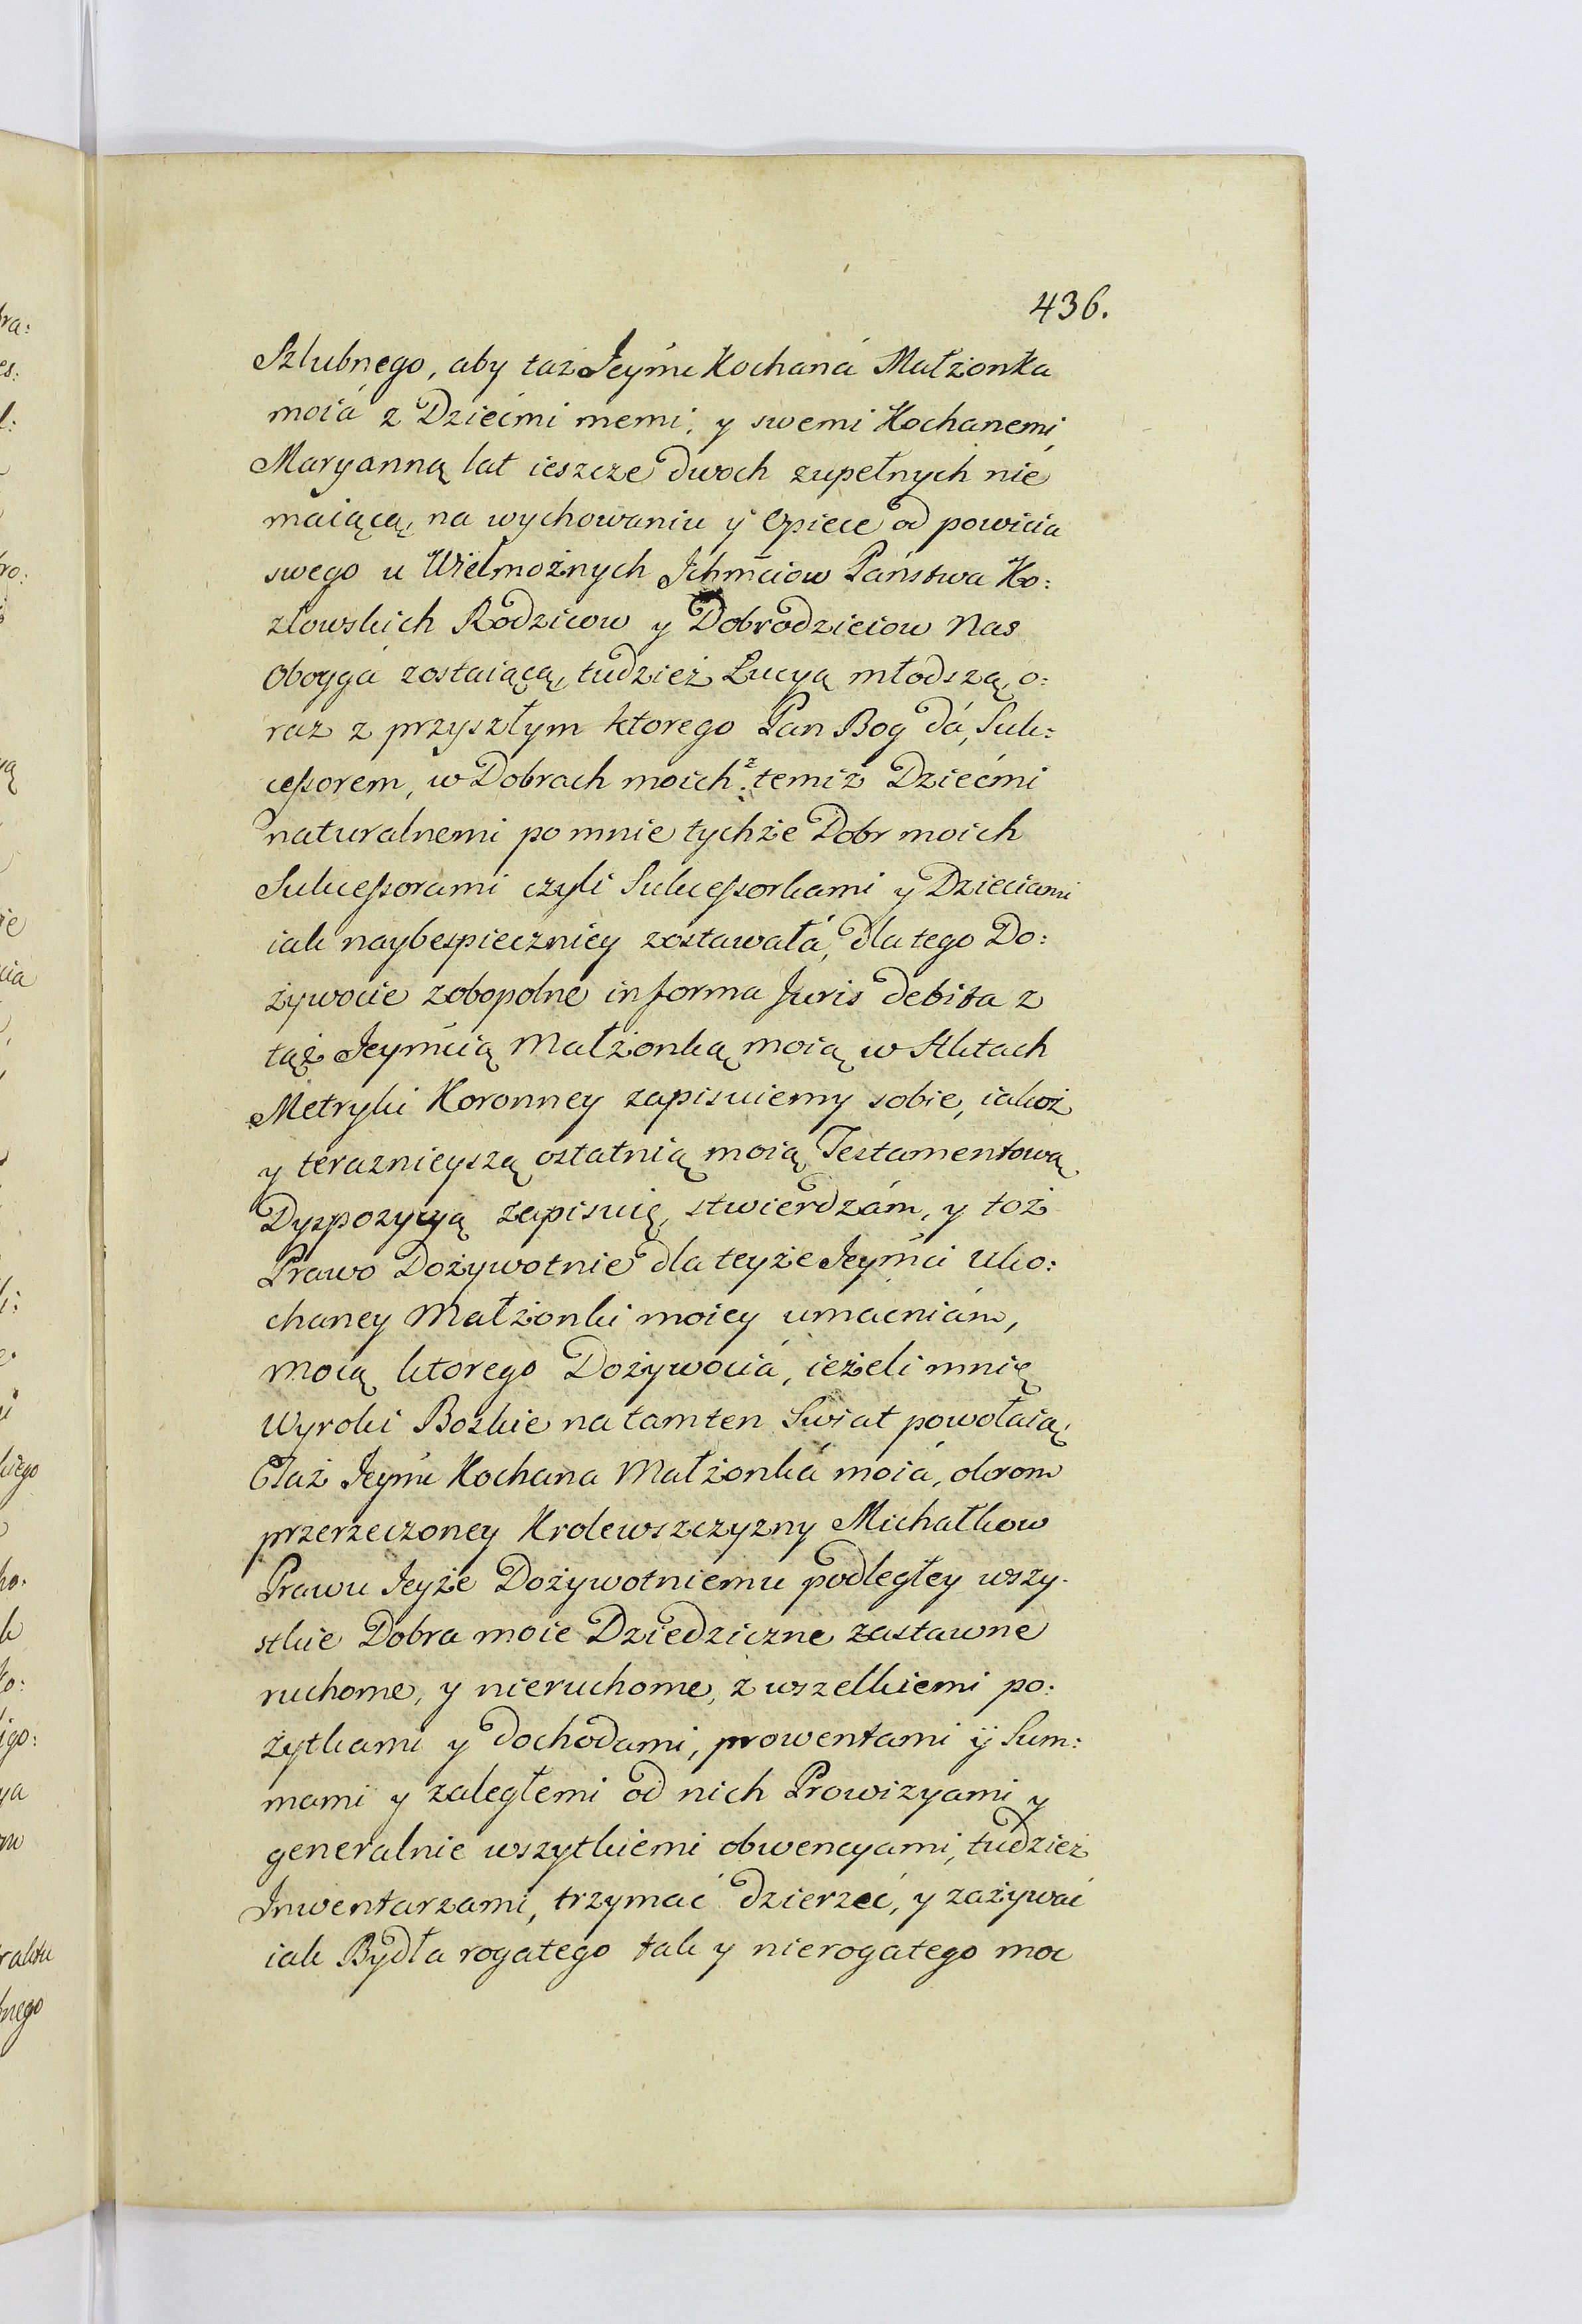 436.
Szlubnego, aby taż Jeymć Kochaná Małżonka
moiá z Dziećmi memi, y swemi Kochanemi,
Maryanną lat ieszcze dwoch zupełnych nie
maiącą, na wychowaniu y Opiece od powicia
swego u Wielmożnych Ichmciow Państwa Ko:
złowskich Rodzicow y Dobrodzieiow Nas
Oboyga zostaiącą, tudzież Lucyą młodszą, o:
raz z przyszłym ktorego Pan Bog dá, Suk:
cessorem, w Dobrach moich z temiż Dziećmi
naturalnemi po mnie tychże Dobr moich
Sukcessorami czyli Sukcessorkami y Dzieciami
iak naybespieczniey zostawałá, dla tego Do:
żywocie zobopolne in forma Juris debita z
tąż Jeymcią Małżonką moią w Aktach
Metryki Koronney zapisuiemy sobie, iakoż
y teraznieyszą ostatnią moią Testamentową
Dyspozycyą zapisuię, stwierdzám, y toż
Prawo Dożywotnie dla teyże Jeymci Uko:
chaney Małżonki moiey umacniám,
Mocą ktorego Dożywociá, ieżeli mnię
Wyroki Boskie na tamten Swiat powołaią,
Taż Jeymć Kochana Małżonká moiá, okrom
przerzeczoney Krolewszczyzny Michałkow
Prawu Jeyże Dożywotniemu podległey wszy-
stkie Dobra moie Dziedziczne zastawne
ruchome, y nieruchome, z wszelkiemi po:
żytkami y dochodami, prowentami ÿ Sum:
mami y zaległemi od nich Prowizyami y
generalnie wszytkiemi obwencyami, tudzież
Inwentarzami, trzymać dzierzeć, y zażywać
iak Bydła rogatego tak y nierogatego moc